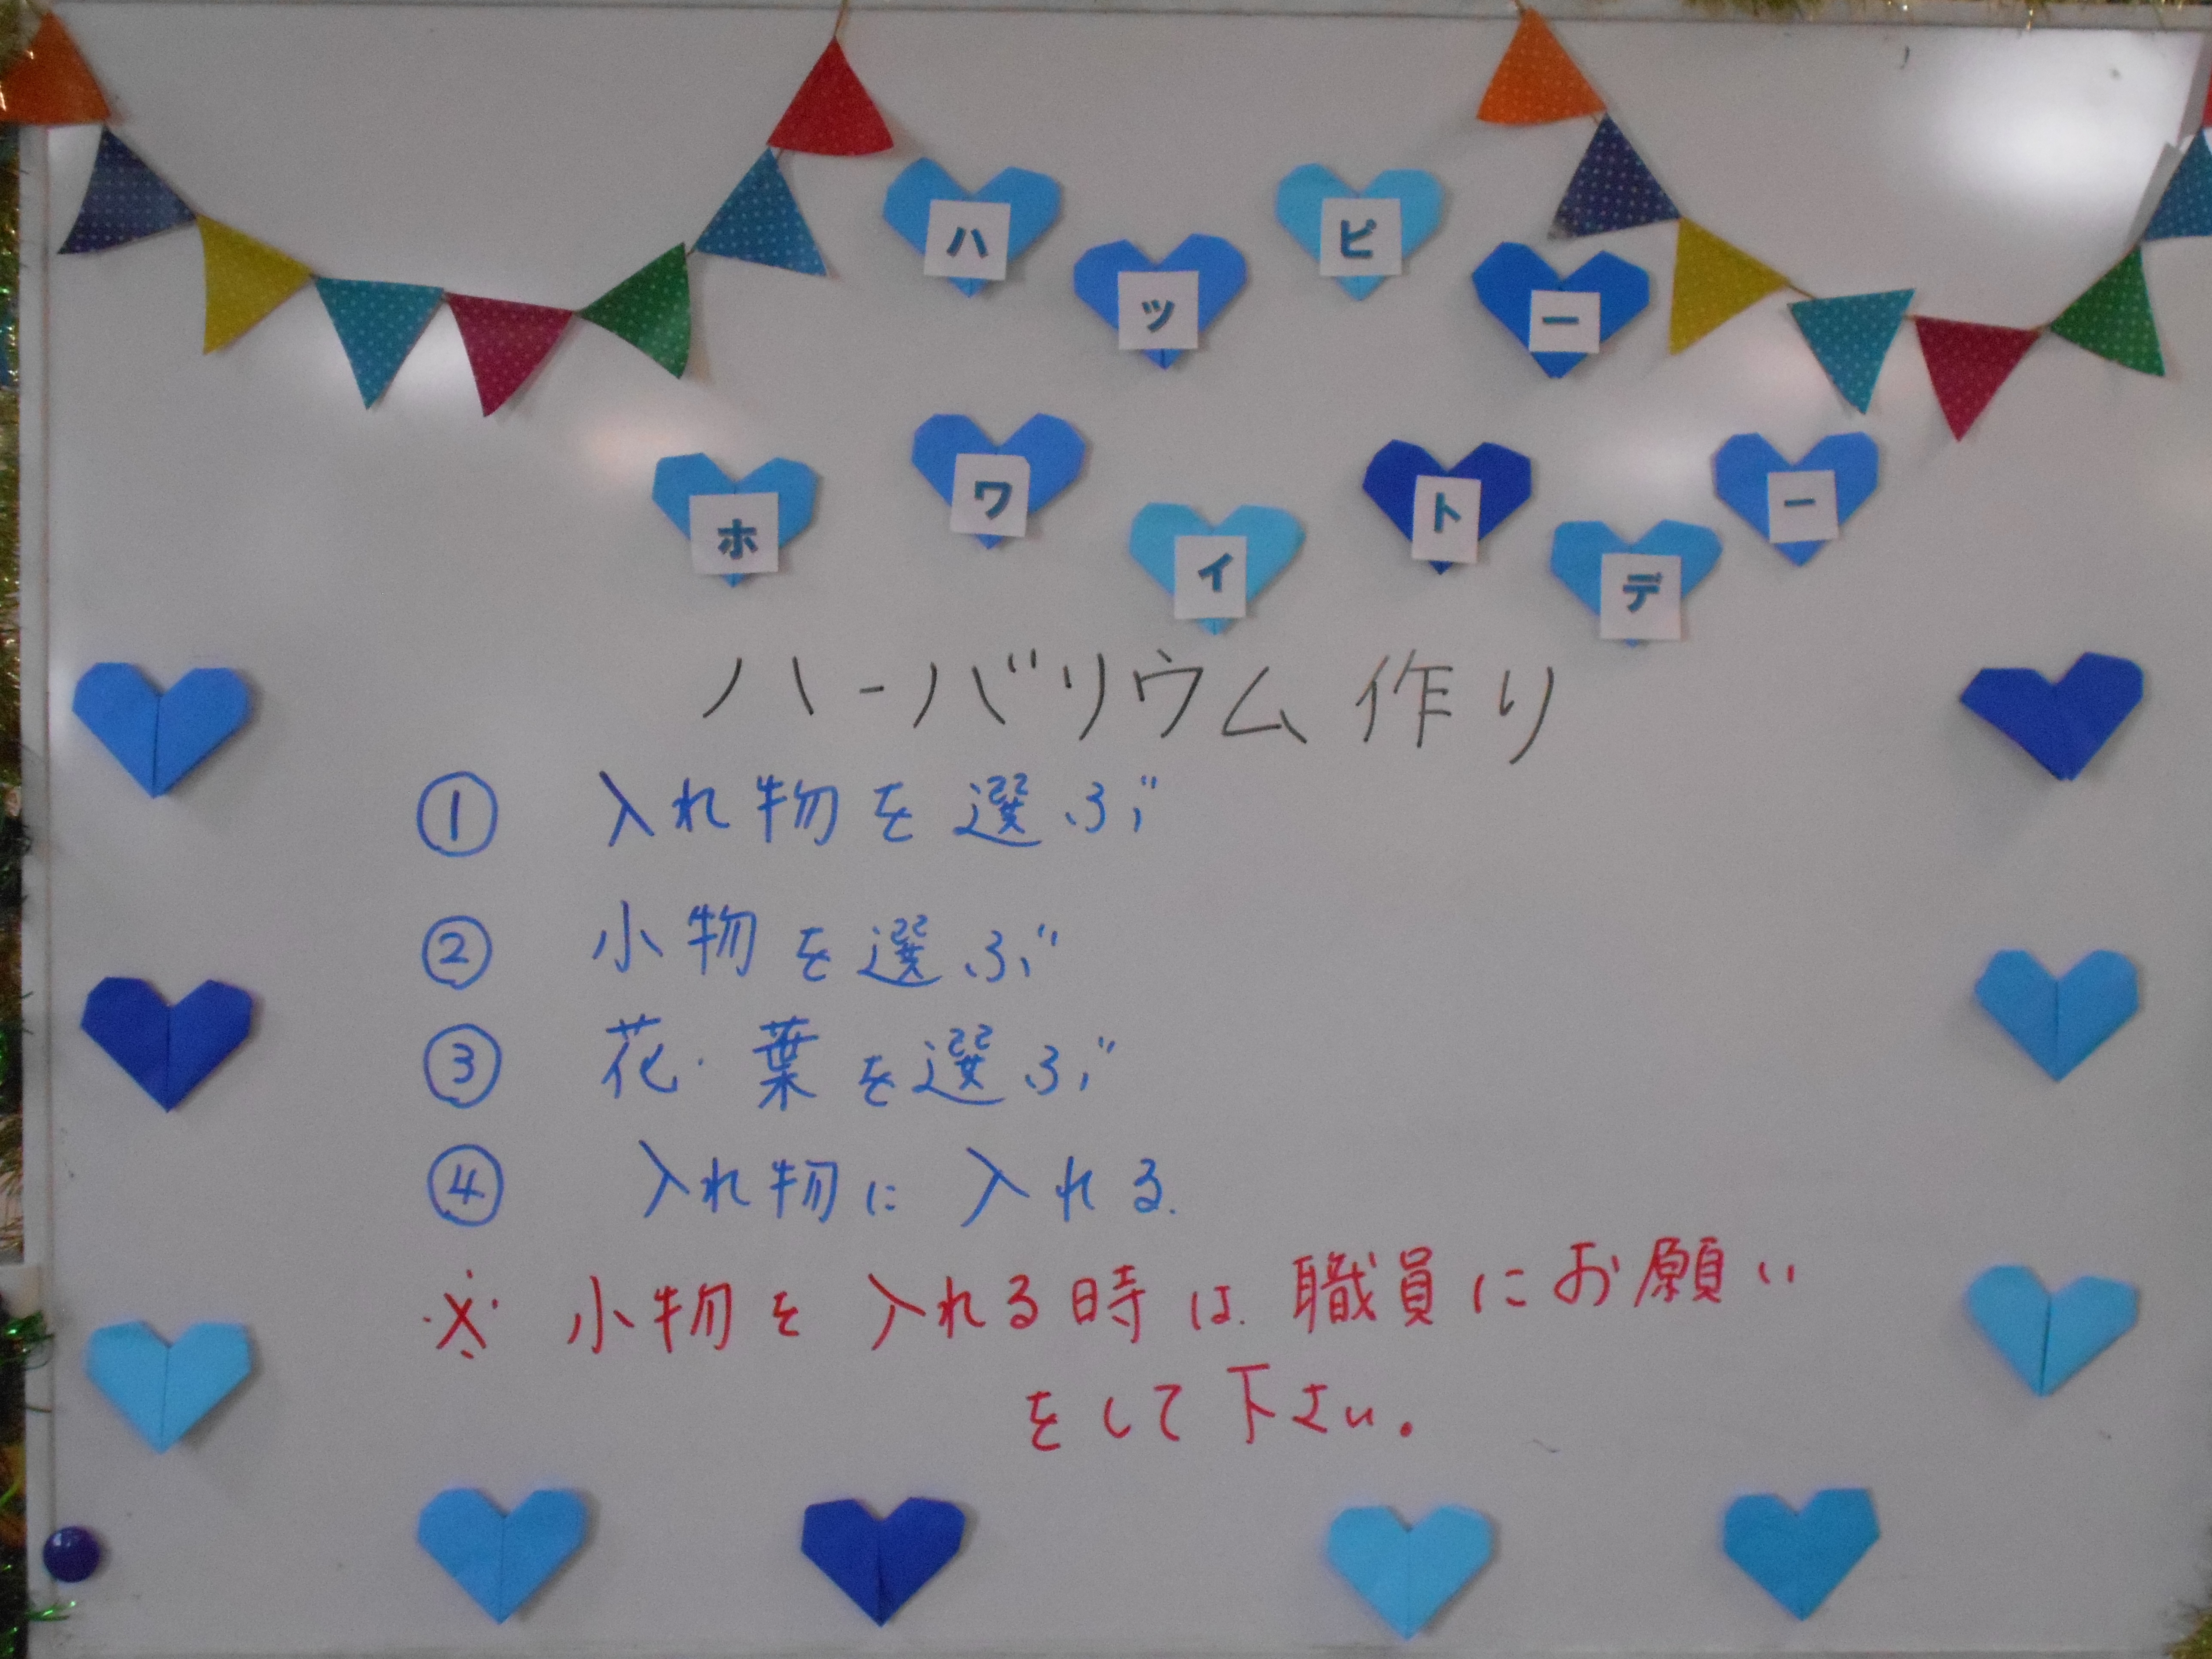 ハッピー
ホワイトデー
ハーバリウム作り
① 入れ物を選ぶ
② 小物を選ぶ
③ 花・葉を選ぶ
④ 入れ物に入れる.
※ 小物を入れる時は職員にお願い
をして下さい。